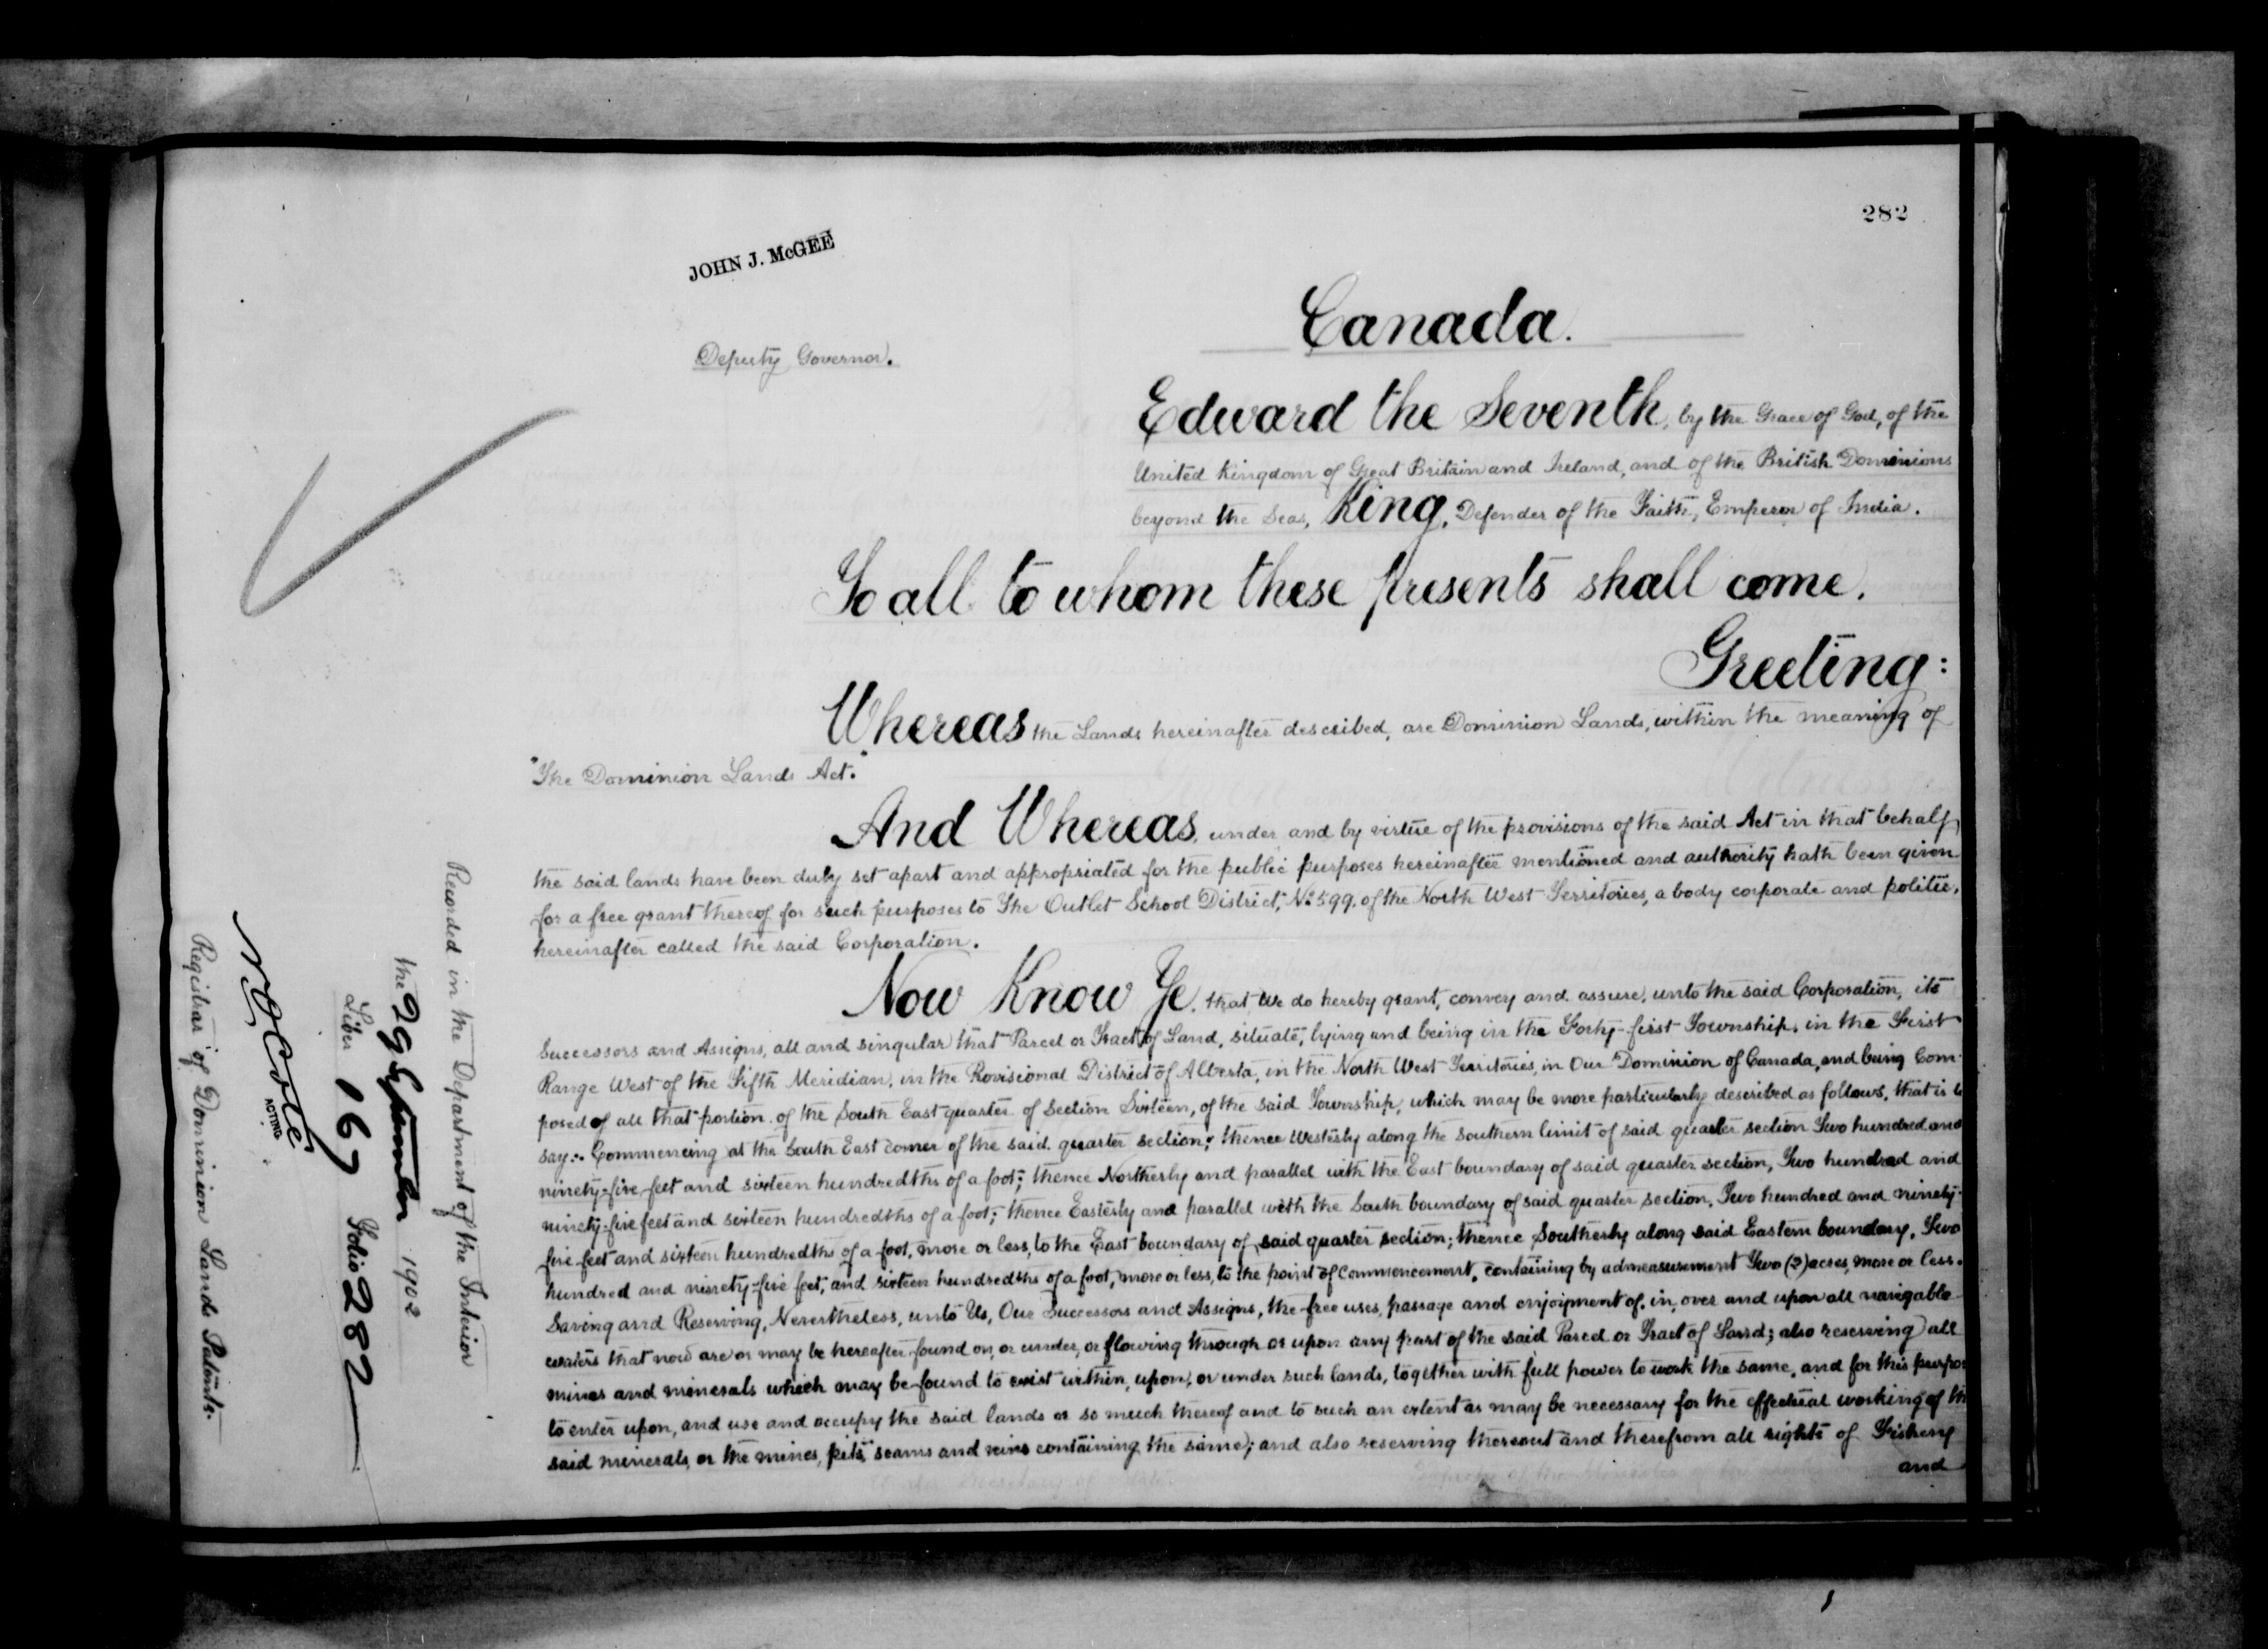 282
JOHN J. McGEE
Deputy Governor.
Canada.
Edward the Seventh, by the Grace of God, of the
United Kingdom of Great Britain and Ireland, and of the British Dominions
beyond the Seas, King, Defender of the Faith, Emperor of India.
To all to whom these presents shall come.
Greeting:
Whereas the Lands hereinafter described, are Dominion Lands, within the meaning of
"The Dominion Lands Act."
And Whereas, under and by virtue of the provisions of the said Act in that behalf,
the said lands have been duly set apart and appropriated for the public purposes hereinafter mentioned and authority hath been given
for a free grant thereof for such purposes to The Outlet School District, No 599. of the North West Territories, a body corporate and politic,
hereinafter called the said Corporation.
Now Know Ye, that We do hereby grant, convey and assure, unto the said Corporation, its
Successors and Assigns, all and singular that Parcel or Tract of Land, situate, lying and being in the Forty-first Township, in the First
Range West of the Fifth Meridian, in the Provisional District of Alberta, in the North West Territories, in Our Dominion of Canada, and being Com-
posed of all that portion of the South East quarter of Section Sixteen, of the said Township, which may be more particularly described as follows, that is to
say:- Commencing at the South East corner of the said quarter section; thence Westerly along the southern limit of said quarter section Two hundred and
ninety-five feet and sixteen hundredths of a foot; thence Northerly and parallel with the East boundary of said quarter section, Two hundred and
ninety-five feet and sixteen hundredths of a foot; thence Easterly and parallel with the South boundary of said quarter section, Two hundred and ninety-
five feet and sixteen hundredths of a foot, more or less, to the East boundary of said quarter section; thence Southerly along said Eastern boundary, Two
hundred and ninety-five feet, and sixteen hundredths of a foot, more or less, to the point of commencement, containing by admeasurement Two (2) acres, more or less.
Saving and Reserving, Nevertheless, unto Us, Our Successors and Assigns, the free uses, passage and enjoyment of, in, over and upon all navigable
waters that now are or may be hereafter found on, or under, or flowing through or upon any part of the said Parcel or Tract of Land; also reserving all
mines and minerals which may be found to exist within, upon, or under such lands, together with full power to work the same, and for this purpos
to enter upon, and use and occupy the said lands or so much thereof and to such an extent as may be necessary for the effectual working of th
said minerals, or the mines, pits, seams and veins containing the same; and also reserving thereout and therefrom all rights of Fishery
and
Recorded in the Department of the Interior
the 29 September 1902
Liber 167 Folio 282
N O Coté
ACTING
Registrar of Dominion Lands Patents.